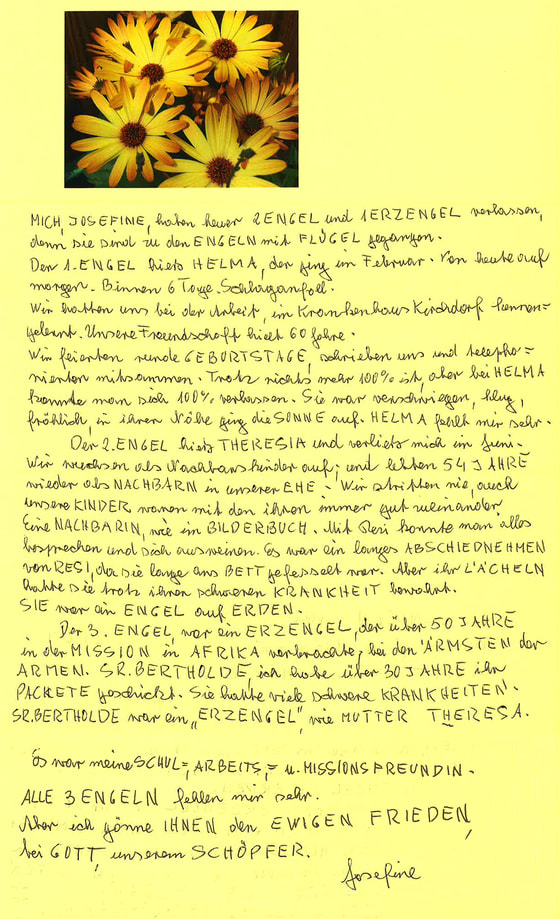 MICH, JOSEFINE, haben heuer 2 ENGEL und 1 ERZENGEL verlassen,
denn sie sind zu den ENGELN mit FLÜGEL gegangen.
Der 1. ENGEL hieß HELMA, der ging im Februar. Von heute auf
morgen. Binnen 6 Tage. Schlaganfall.
Wir hatten uns bei der Arbeit, im Krankenhaus Kirchdorf kennen=
gelernt. Unsere Freundschaft hielt 60 Jahre.
Wir feierten runde GEBURTSTAGE, schrieben uns und telepho=
nierten mitsammen. Trotz nichts mehr 100% ist, aber bei HELMA
konnte man sich 100% verlassen. Sie war verschwiegen, klug,
fröhlich, in ihrer Nähe ging die SONNE auf. HELMA fehlt mir sehr.
Der 2. ENGEL hieß THERESIA und verließ mich im Juni.
Wir wuchsen als Nachbarskinder auf, und lebten 54 JAHRE
wieder als NACHBARN in unserer EHE. Wir stritten nie, auch
unsere KINDER waren mit den ihren immer gut zueinander.
Eine NACHBARIN, wie im BILDERBUCH. Mit Resi konnte man alles
besprechen und sich ausweinen. Es war ein langes ABSCHIEDNEHMEN
von RESI, da sie lange ans BETT gefesselt war. Aber ihr LÄCHELN
hatte sie trotz ihrer schweren KRANKHEIT bewahrt.
SIE war ein ENGEL auf ERDEN.
Der 3. ENGEL, war ein ERZENGEL, der über 50 JAHRE
in der MISSION in AFRIKA verbrachte, bei den ÄRMSTEN der
ARMEN. SR. BERTHOLDE, ich habe über 30 JAHRE ihr
PACKETE geschickt. Sie hatte viele schwere KRANKHEITEN.
SR. BERTHOLDE war ein „ERZENGEL", wie MUTTER THERESA.
Es war meine SCHUL=, ARBEITS,= u. MISSIONSFREUNDIN.
ALLE 3 ENGELN fehlen mir sehr.
Aber ich gönne IHNEN den EWIGEN FRIEDEN,
bei GOTT, unserem SCHÖPFER.
Josefine